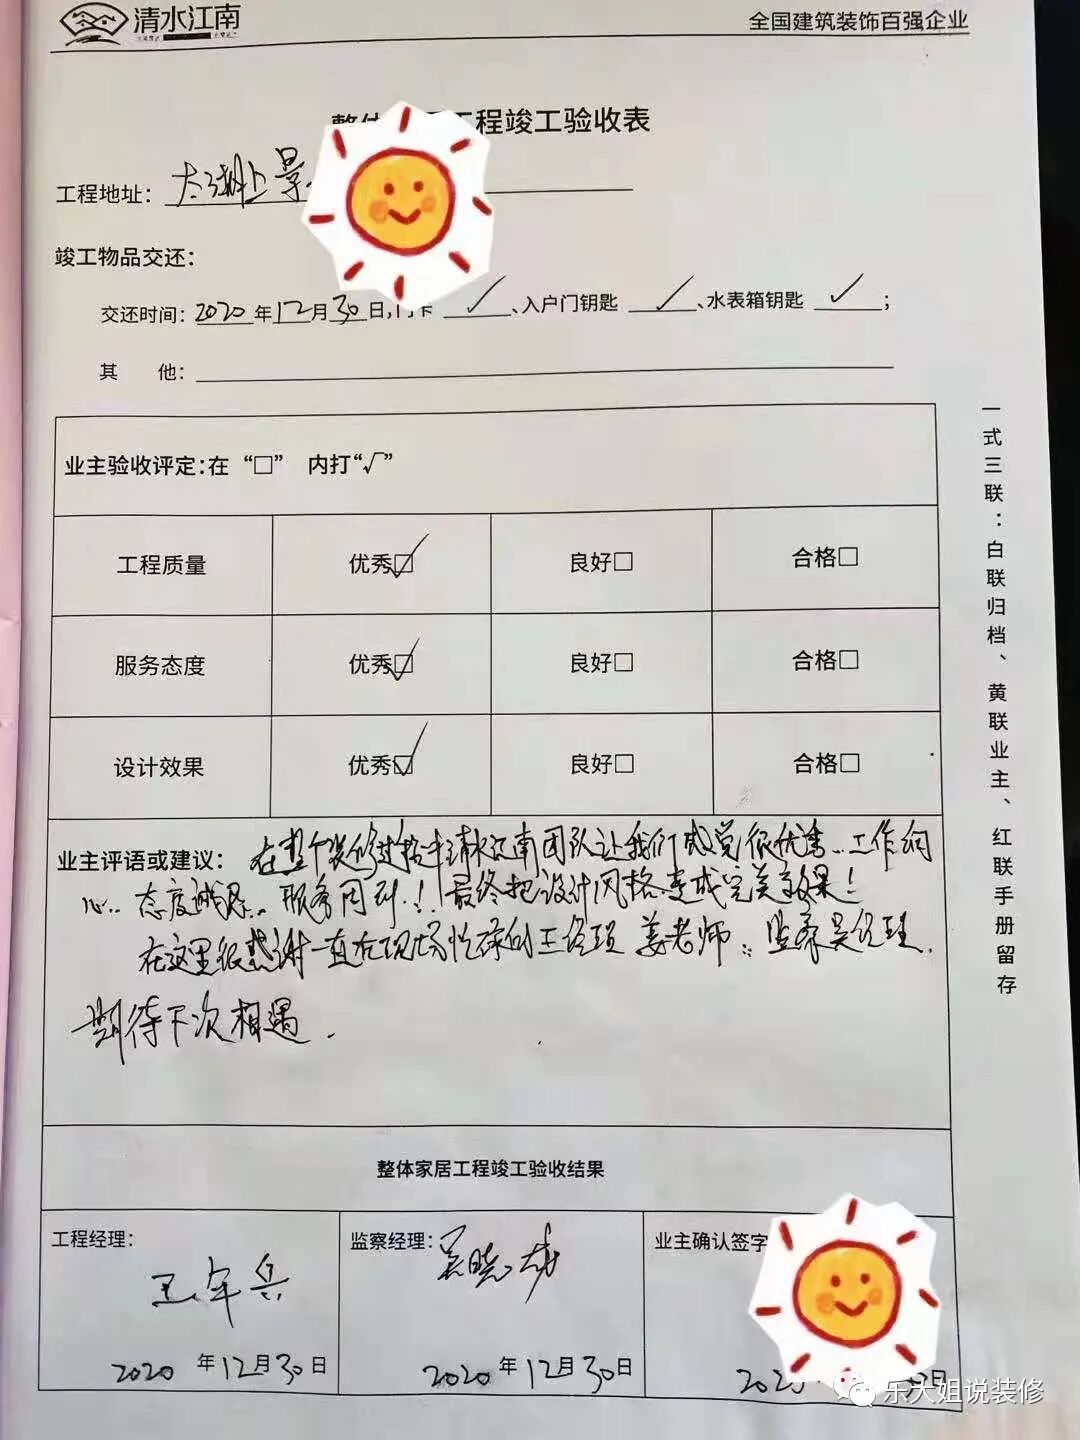 清水江南
全国建筑装饰百强企业
工程竣工验收表
工程地址：太湖上景
竣工物品交还：
交还时间：2020年12月30日，门卡 ✓、入户门钥匙 ✓、水表箱钥匙 ✓；
其 他：
业主验收评定：在“□” 内打“√”
工程质量 优秀☑ 良好□ 合格□
服务态度 优秀☑ 良好□ 合格□
设计效果 优秀☑ 良好□ 合格□
业主评语或建议：在整个装修过程中清水江南团队让我们感觉很优秀..工作细
心..态度诚恳..服务周到！！最终把设计风格变成完美效果！
在这里很感谢一直在现场忙碌的王经理 姜老师..监察吴经理.
期待下次相遇.
整体家居工程竣工验收结果
工程经理： 监察经理： 业主确认签字
王军兵 吴晓
2020年12月30日 2020年12月30日 日
一式三联：白联归档、黄联业主、红联手册留存
乐大姐说装修